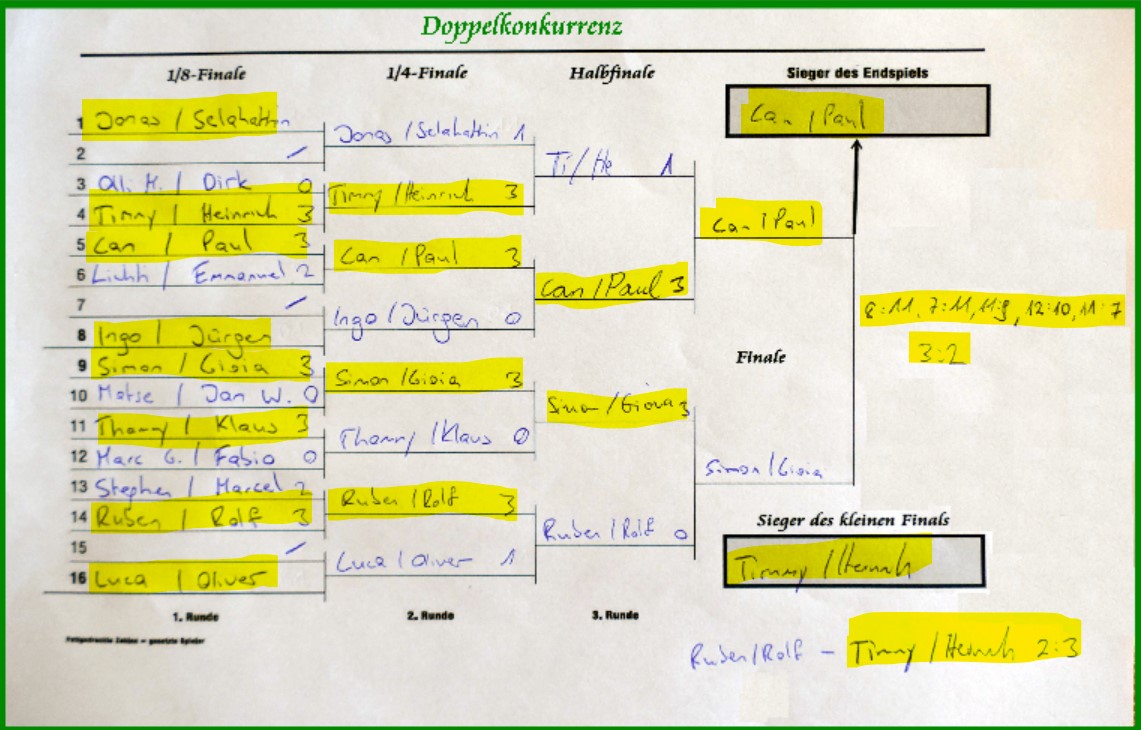 Doppelkonkurrenz
1/8-Finale 1/4-Finale Halbfinale Sieger des Endspiels
Can / Paul
1 Jonas / Selahattin
Jonas / Selahattin 1
2 /
Ti/He 1
3 Olli M. / Dirk 0
Timmy / Heinrich 3
4 Timmy / Heinrich 3
Can / Paul
5 Can / Paul 3
Can / Paul 3
6 Lichti / Emmanuel 2
Can / Paul 3
7 /
Ingo / Jürgen 0
8:11, 7:11, 11:9, 12:10, 11:7
8 Ingo / Jürgen
3:2
Finale
9 Simon / Gioia 3
Simon / Gioia 3
10 Matse / Jan W. 0
Simon / Giova 3
11 Thommy / Klaus 3
Thommy / Klaus 0
12 Marc G. / Fabio 0
Simon / Gioia
13 Stephen / Marcel 2
Ruben / Rolf 3
14 Ruben / Rolf 3
Sieger des kleinen Finals
Ruben / Rolf 0
15 /
Luca / Oliver 1
Timmy / Heinrich
16 Luca / Oliver
1. Runde 2. Runde 3. Runde
Fettgedruckte Zahlen = gesetzte Spieler
Ruben/Rolf - Timmy / Heinrich 2:3